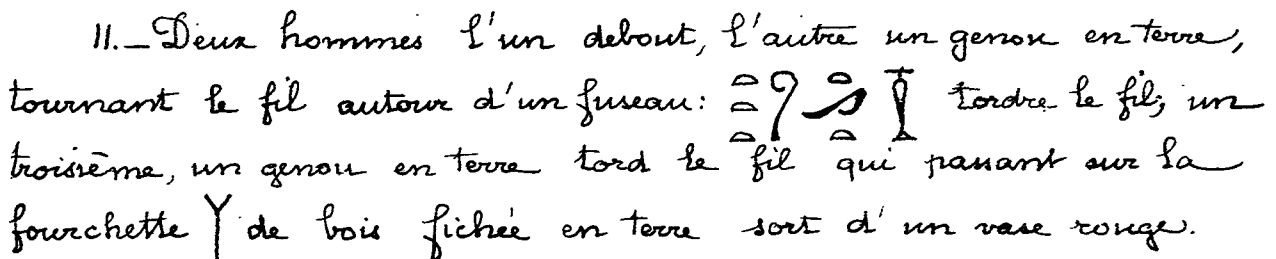 11.—Deux hommes l'un debout, l'autre un genou en terre,
tournant le fil autour d'un fuseau: tordre le fil; un
troisième, un genou en terre tord le fil qui passant sur la
fourchette de bois fichée en terre sort d'un vase rouge.